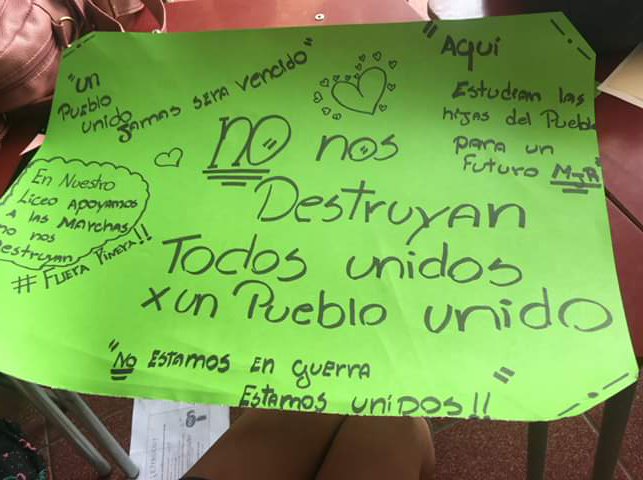 "un
Pueblo
unido
Jamas sera vencido"
"Aquí
Estudian las
hijas del Pueblo
para un
Futuro MJR"
NO nos
Destruyan
Todos unidos
x un Pueblo unido
En Nuestro
Liceo Apoyamos
A las MArchas
no nos
estruyan
# Fuera Pineya!!
"No Estamos En guerra
Estamos unidos!!"